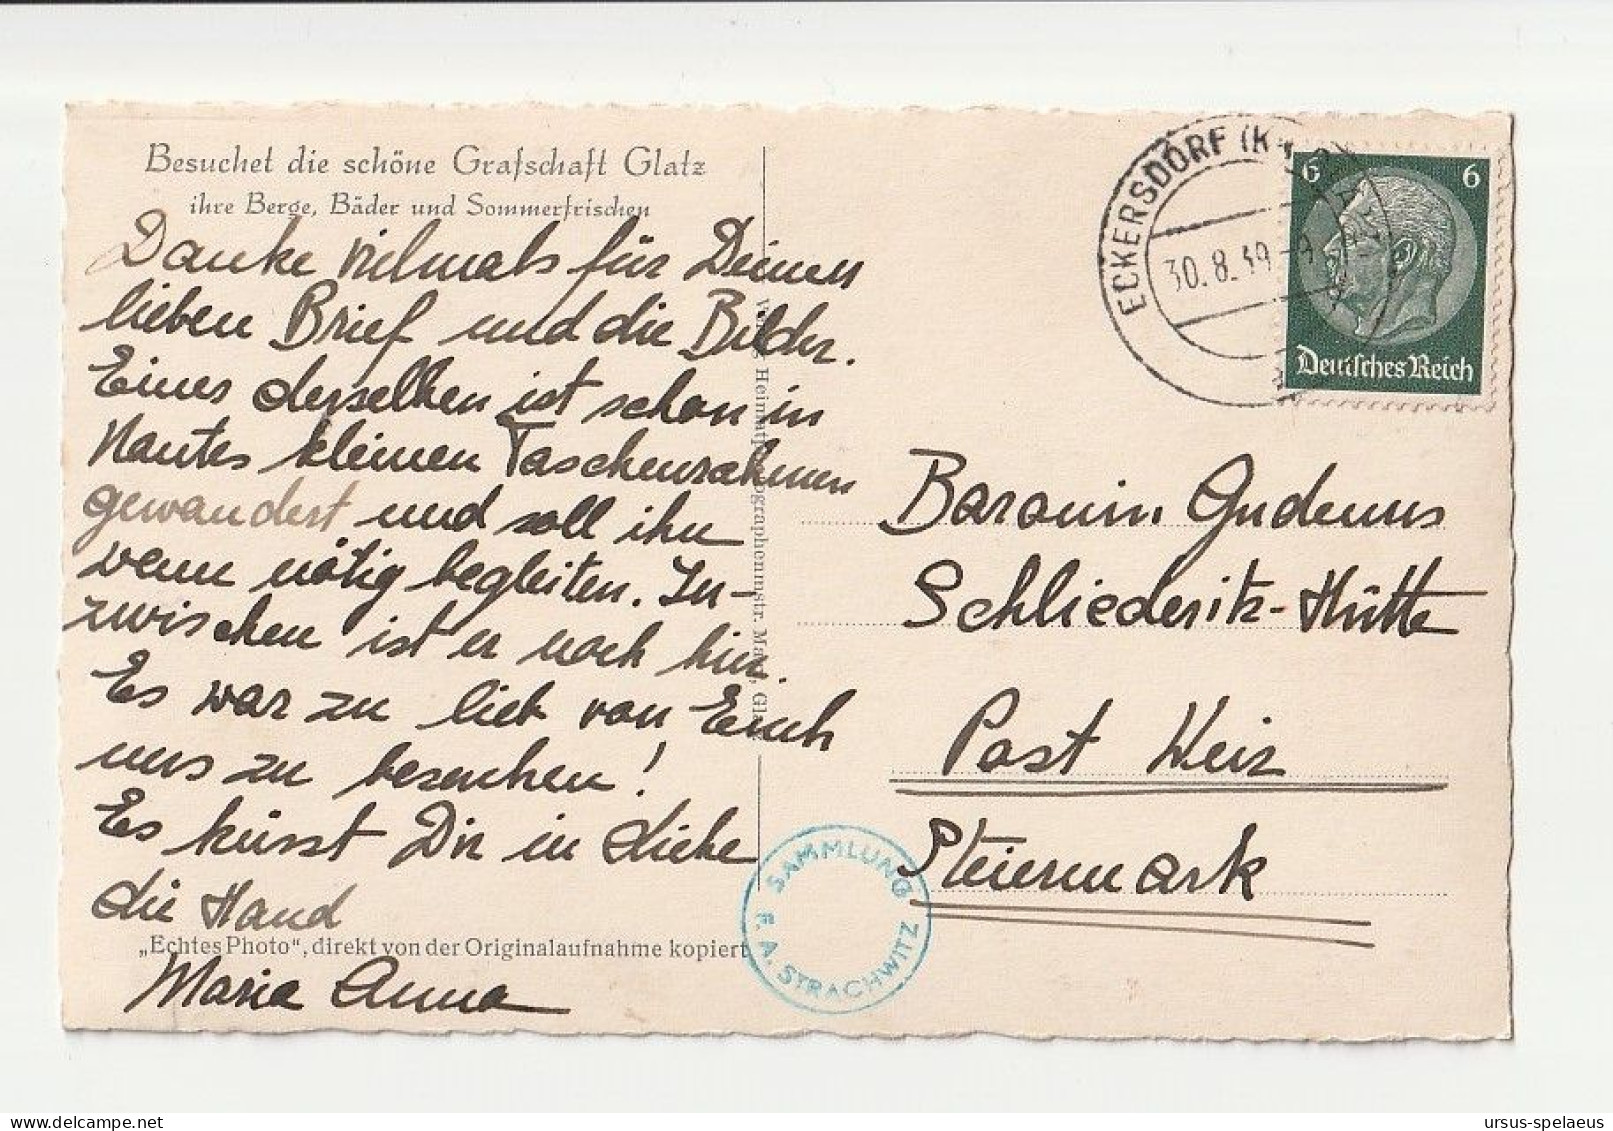 Besuchet die schöne Grafschaft Glatz
ihre Berge, Bäder und Sommerfrischen
Danke vielmals für Deinen
lieben Brief und die Bilder.
Eines derselben ist schon in
Nantes kleinen Taschenrahmen
gewandert und soll ihn
wenn nötig begleiten. In-
zwischen ist er noch hier.
Es war zu lieb von Euch
uns zu besuchen!
Es küsst Dir in Liebe
die Hand
„Echtes Photo", direkt von der Originalaufnahme kopiert
Maria Anna
Heimatphotographenmstr.
ECKERSDORF
30.8.39
6 6
Deutsches Reich
Baronin Gudenus
Schliederitz-Hütte
Post Weiz
Steiermark
SAMMLUNG
F. A. STRACHWITZ
ursus-spelaeus